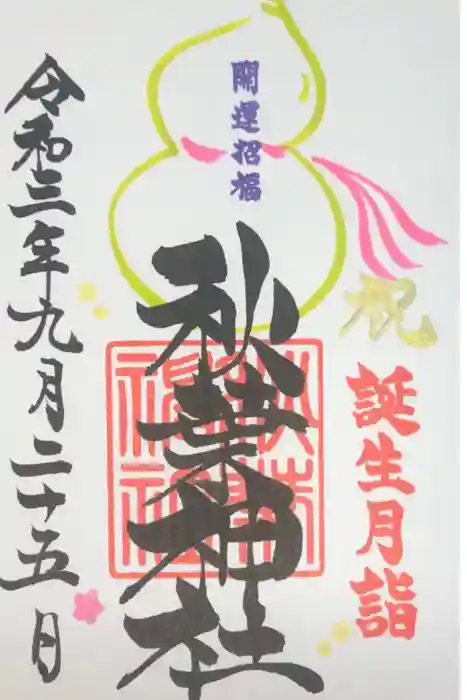 祝
誕生月詣
開運招福
秋葉神社
令和三年九月二十五日